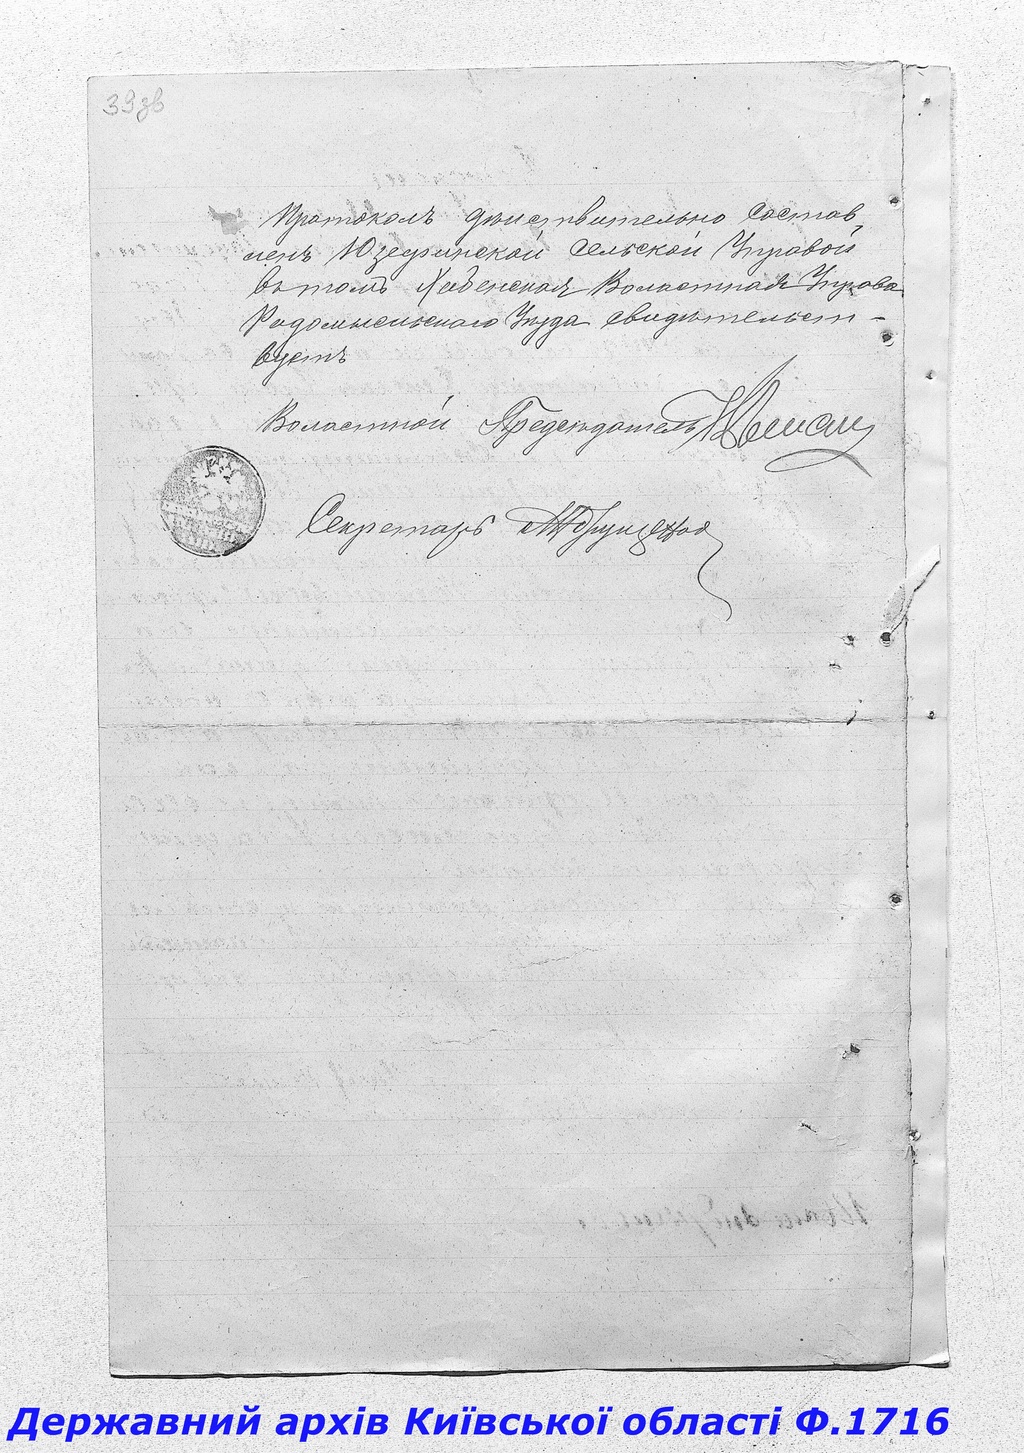 39зв
Протоколъ дѣиствительно состав
ленъ Юзефинской Сельской Управой
въ томъ Хабенская Воластная Управа
Радомысльскаго Уѣзда свидѣтельст-
вуетъ
Воластной Предсѣдатель
Секретарь
Державний архів Київської області Ф.1716